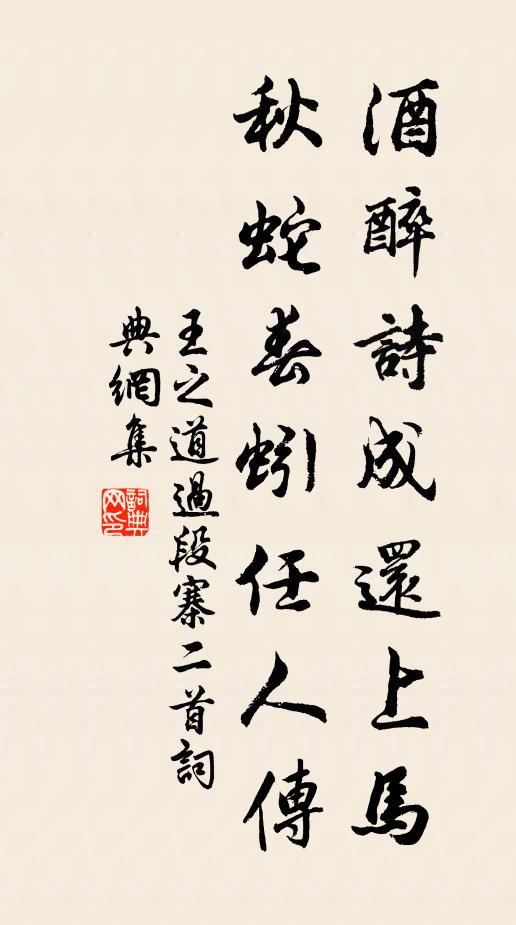 酒醉詩成還上馬
秋蛇春蚓任人傳
王之道過段寨二首詞
典網集
詞典网印